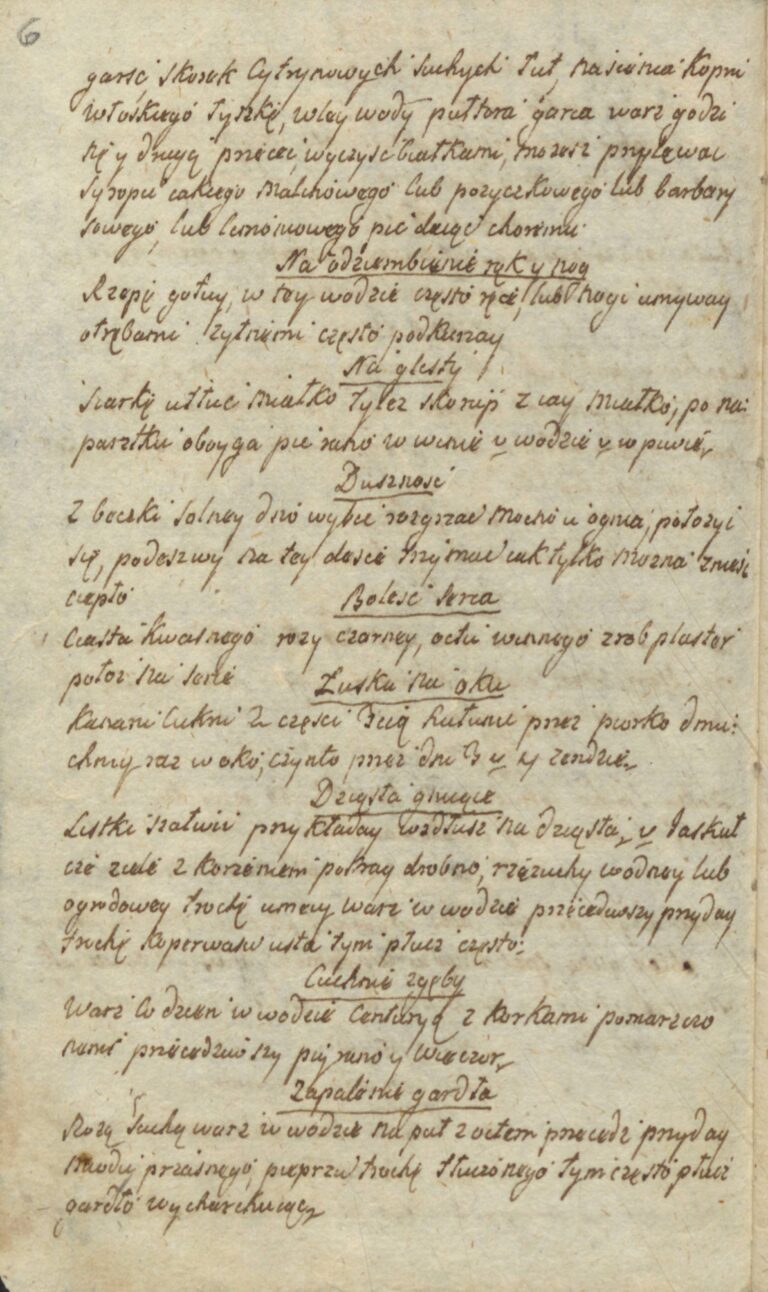 6
garść skorek Cytrynowych suchych łut, nasienia Kopru
włoskiego łyszkę, wley wody pułtora garca warz godzi
nę y drugą przeceć, wyczyść białkami, możesz przylewac
Syropu iakiego Malinowego lub pożyczkowego lub barbary
sowego, lub Limoniowego, pić dając choremu
Na odziembienie ręk y nog
Rzepę gotuy, w tey wodzie często ręce, lub Nogi umyway
otrębami żytniemi często podkurzay
Na glisty
Siarkę utłuc miałko tylez skorup z iay miałko, po na:
parstku oboyga pić rano w winie v wodzie v w piwie
Duszność
Z beczki Solney dno wybić rozgrzać mocno u ognia, położyć
się, podeszwy na tey desce trzymać iak tylko można znieść
ciepło
Boleść serca
Ciasta kwasnego rozy czarney, octu winnego zrob plastor
połoz na serce
Łuska na oku
Kanaru Cukru 2 części 3cią hałunu przez piorko dmu:
chniy raz w oko, czyń to przez dni 3 v 4
Dziąsła gniiące
Listki szałwii przykładay wzdłusz na dziąsła, v Jaskuł
cze ziele z korzeniem pokray drobno, rzeżuchy wodney lub
ogrodowey trochę umący warz w wodzie przecedziwszy przyday
trochę koperwasu usta tym płucz często:
Cuchnie z gęby
Warz Co dzien w wodzie Centuryą z skorkami pomarzczo
nemi przecedziwszy piy rano y wieczor
Zapalenie gardła
Rożą Suchą warz w wodzie na puł z octem przecedz przyday
miodu przasnego, pieprzu trochę tłuczonego tym często płucz
gardło wycharkuiąc